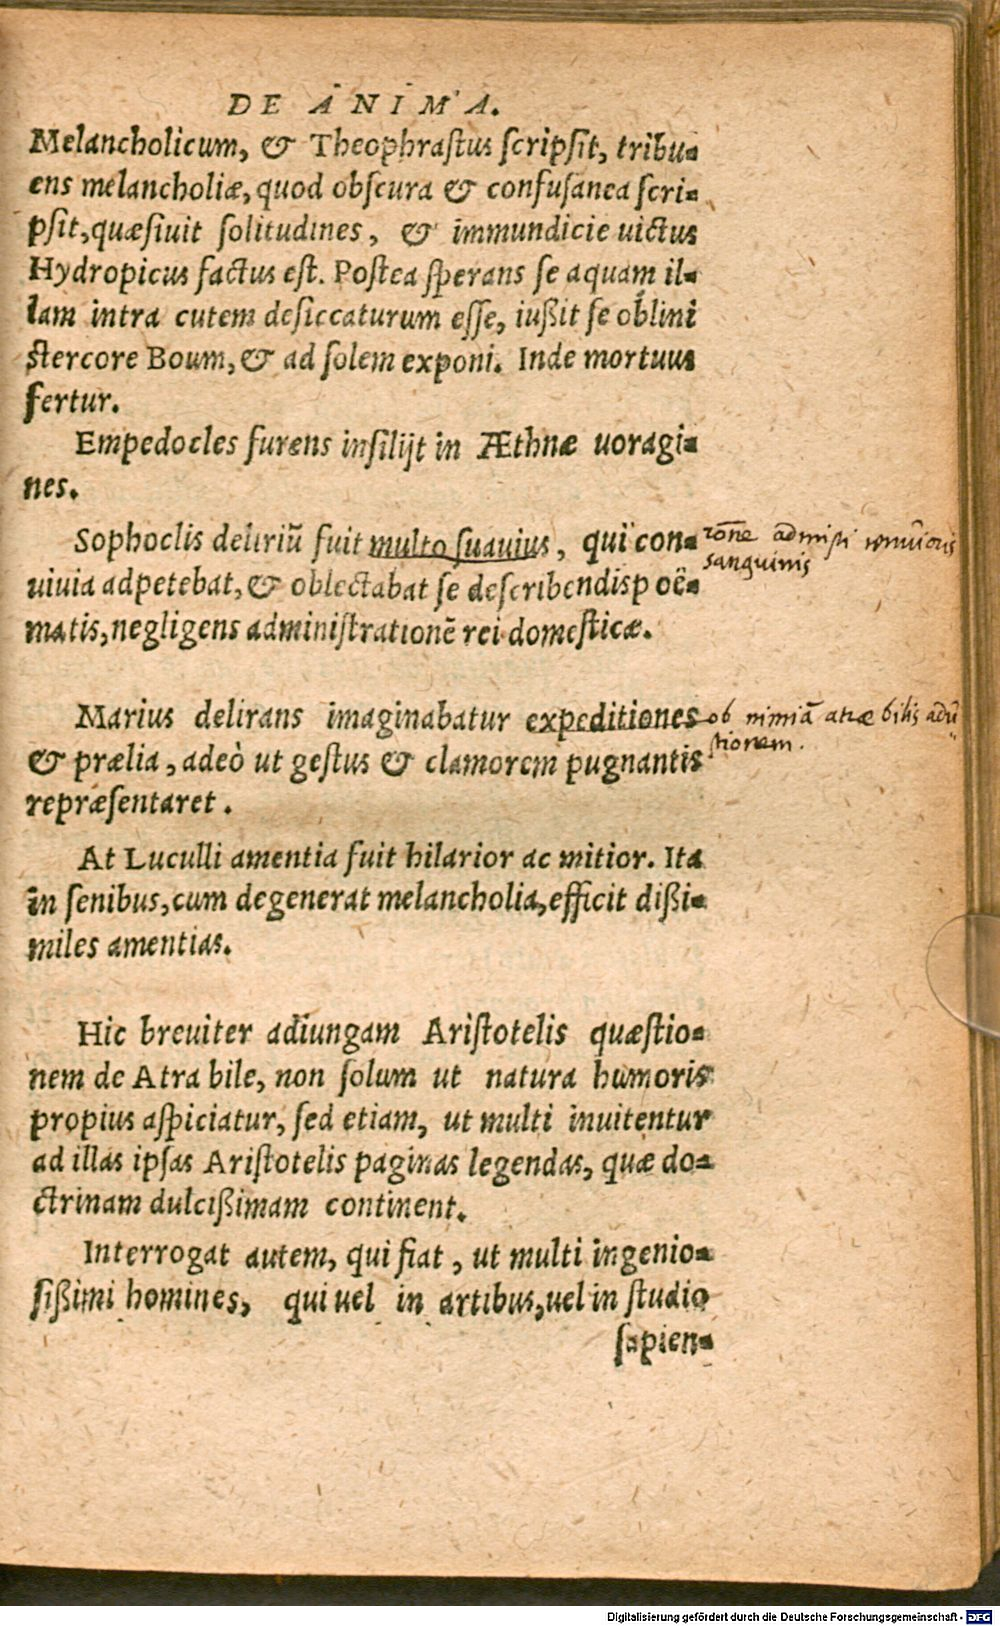 DE ANIMA.
Melancholicum, & Theophrastus scripsit, tribu-
ens melancholiæ, quod obscura & confusanea scri-
psit, quæsiuit solitudines, & immundicie uictus
Hydropicus factus est. Postea sperans se aquam il-
lam intra cutem desiccaturum esse, iußit se oblini
stercore Boum, & ad solem exponi. Inde mortuus
fertur.
Empedocles furens insilijt in Æthnæ uoragi-
nes.
Sophoclis deliriũ fuit multo suauius, qui con-
uiuia adpetebat, & oblectabat se describendis poë-
matis, negligens administrationẽ rei domesticæ.
rõne admisti tenuioris
sanguinis
Marius delirans imaginabatur expeditiones
& prælia, adeò ut gestus & clamorem pugnantis
repræsentaret.
ob nimiã atræ bilis adu-
stionem.
At Luculli amentia fuit hilarior ac mitior. Ita
in senibus, cum degenerat melancholia, efficit dißi-
miles amentias.
Hic breuiter adiungam Aristotelis quæstio-
nem de Atra bile, non solum ut natura humoris
propius aspiciatur, sed etiam, ut multi inuitentur
ad illas ipsas Aristotelis paginas legendas, quæ do-
ctrinam dulcißimam continent.
Interrogat autem, qui fiat, ut multi ingenio-
sißimi homines, qui uel in artibus, uel in studio
sapien-
Digitalisierung gefördert durch die Deutsche Forschungsgemeinschaft - DFG